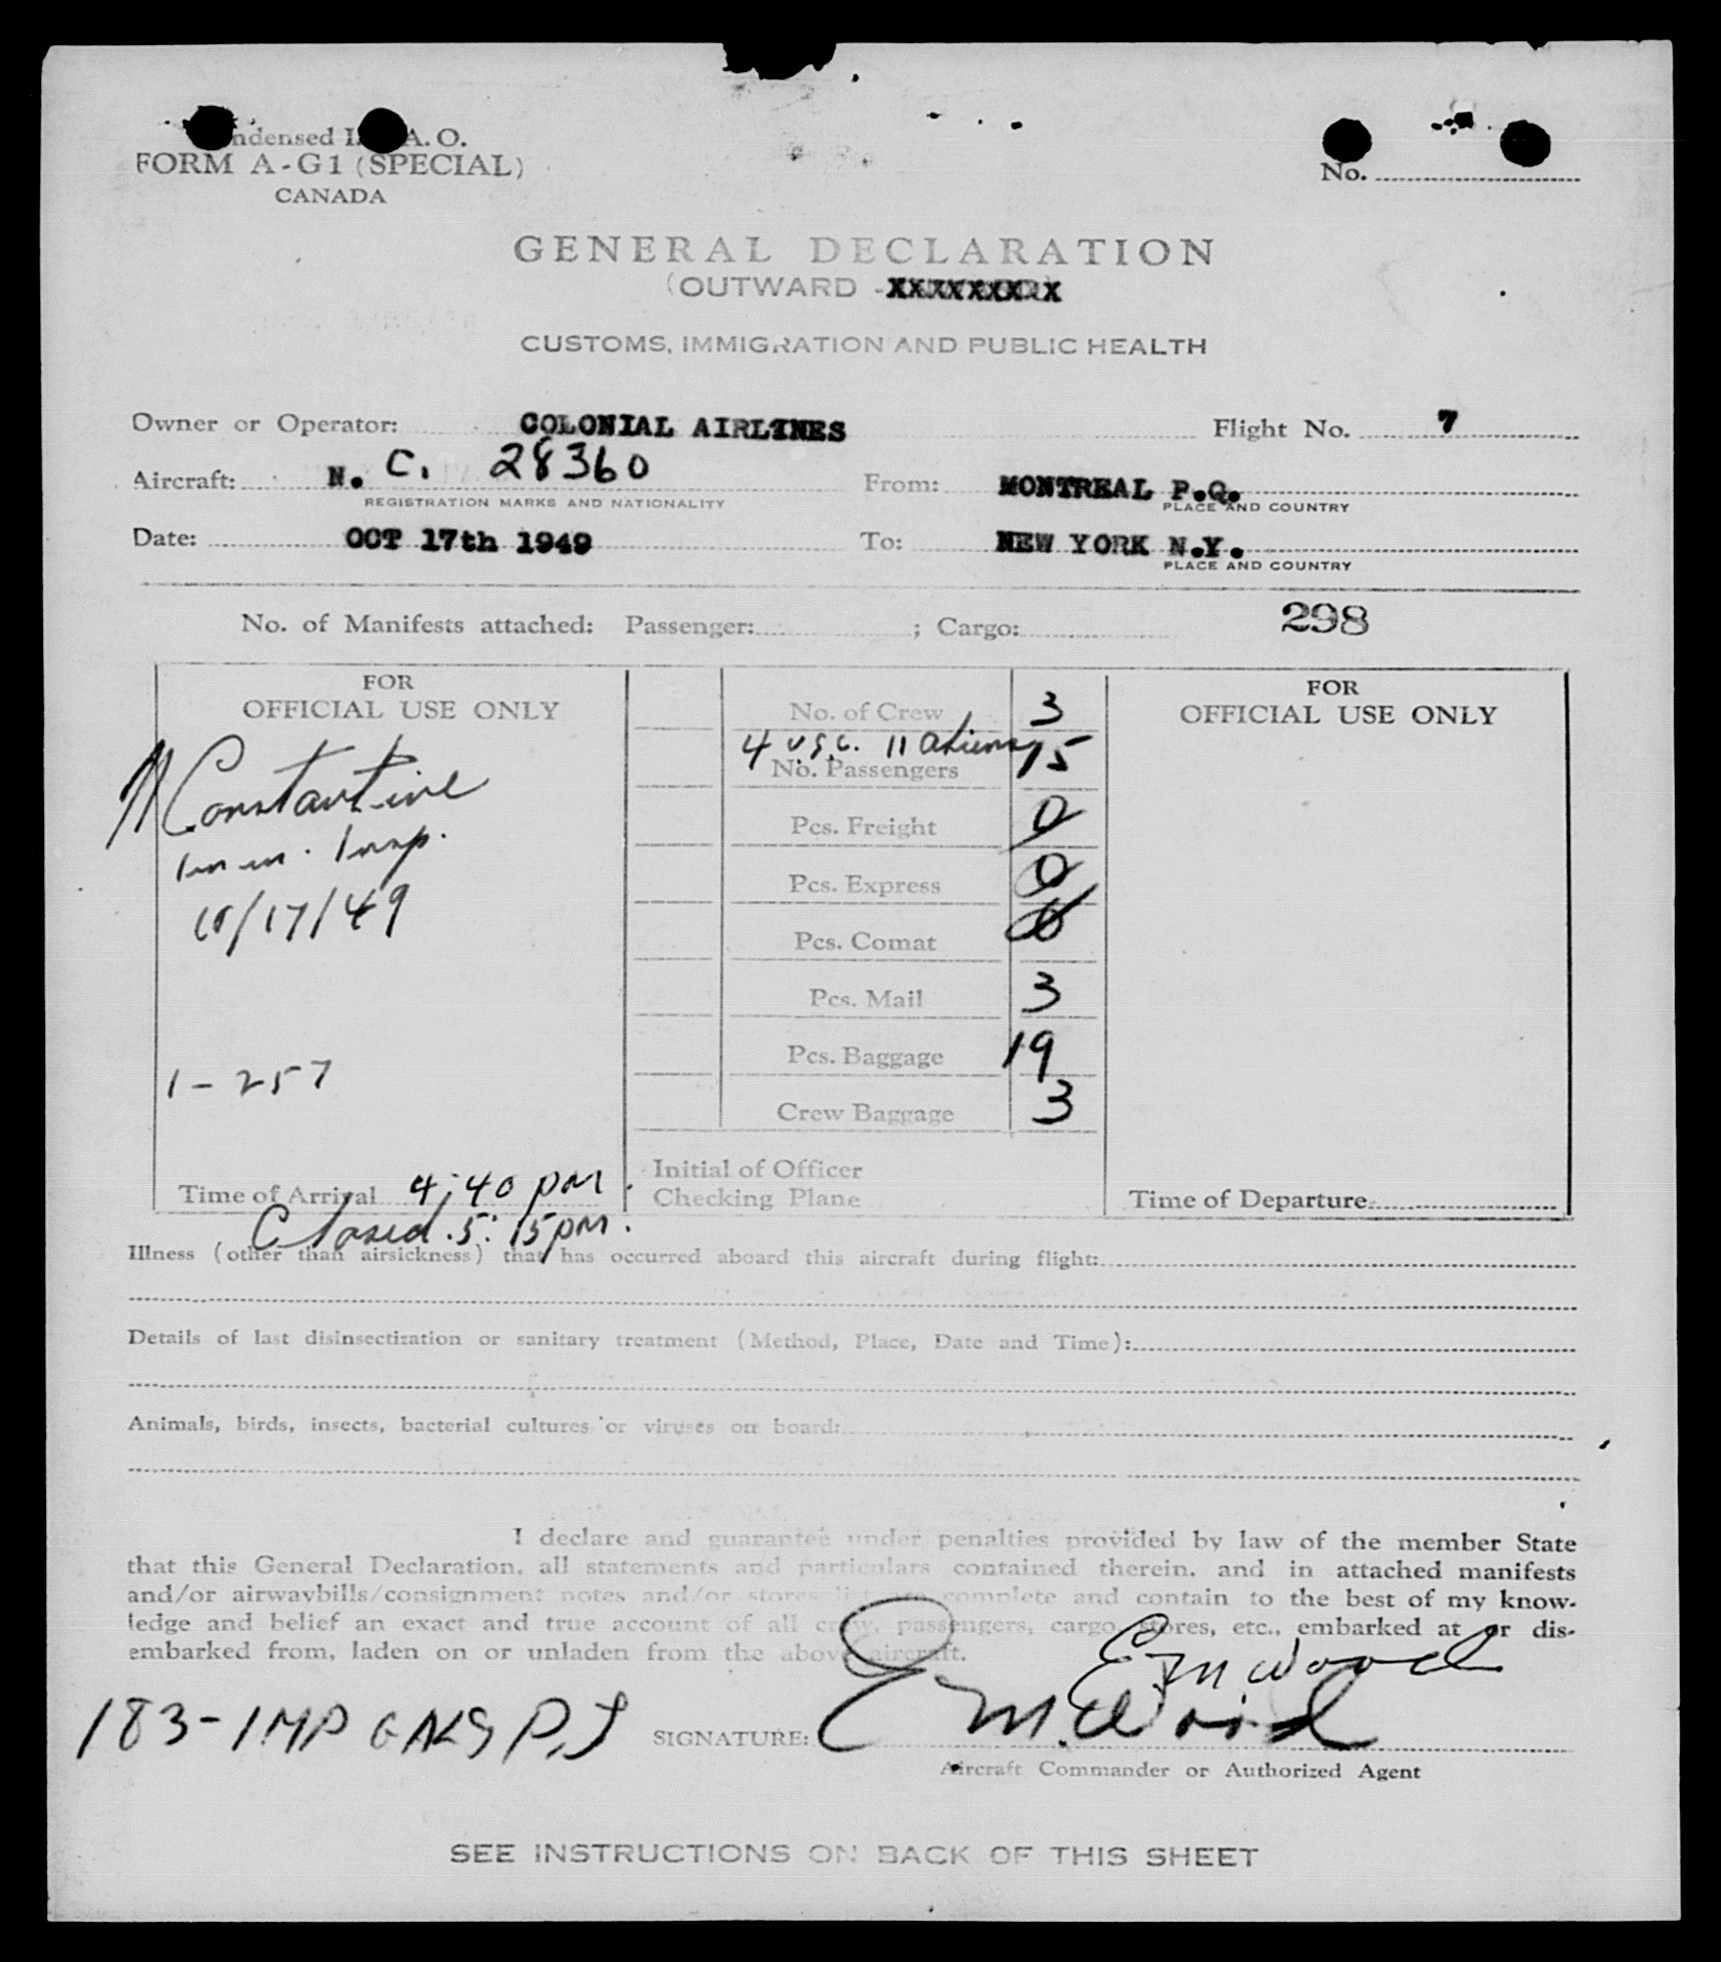 ndensed I. A. O.
FORM A-G1 (SPECIAL)
CANADA
No.
GENERAL DECLARATION
(OUTWARD - XXXXXXXXX
CUSTOMS, IMMIGRATION AND PUBLIC HEALTH
Owner or Operator: COLONIAL AIRLINES Flight No. 7
Aircraft: N. C. 28360 From: MONTREAL P.Q.
REGISTRATION MARKS AND NATIONALITY PLACE AND COUNTRY
Date: OCT 17th 1949 To: NEW YORK N.Y.
PLACE AND COUNTRY
No. of Manifests attached: Passenger: ; Cargo: 298
FOR
OFFICIAL USE ONLY
Constantine
Imm. Insp.
10/17/49
1-257
Time of Arrival 4:40 pm.
Closed. 5:15 pm.
No. of Crew 3
4 USC. 11 Aliens
No. Passengers 15
Pcs. Freight 0
Pcs. Express 0
Pcs. Comat 0
Pcs. Mail 3
Pcs. Baggage 19
Crew Baggage 3
Initial of Officer
Checking Plane
FOR
OFFICIAL USE ONLY
Time of Departure
Illness (other than airsickness) that has occurred aboard this aircraft during flight:
Details of last disinsectization or sanitary treatment (Method, Place, Date and Time):
Animals, birds, insects, bacterial cultures or viruses on board:
I declare and guarantee under penalties provided by law of the member State
that this General Declaration, all statements and particulars contained therein, and in attached manifests
and/or airwaybills/consignment notes and/or stores list are complete and contain to the best of my know-
ledge and belief an exact and true account of all crew, passengers, cargo, stores, etc., embarked at or dis-
embarked from, laden on or unladen from the above aircraft.
EM Wood
183-IMP GALS P.J
SIGNATURE: E M. Wood
Aircraft Commander or Authorized Agent
SEE INSTRUCTIONS ON BACK OF THIS SHEET